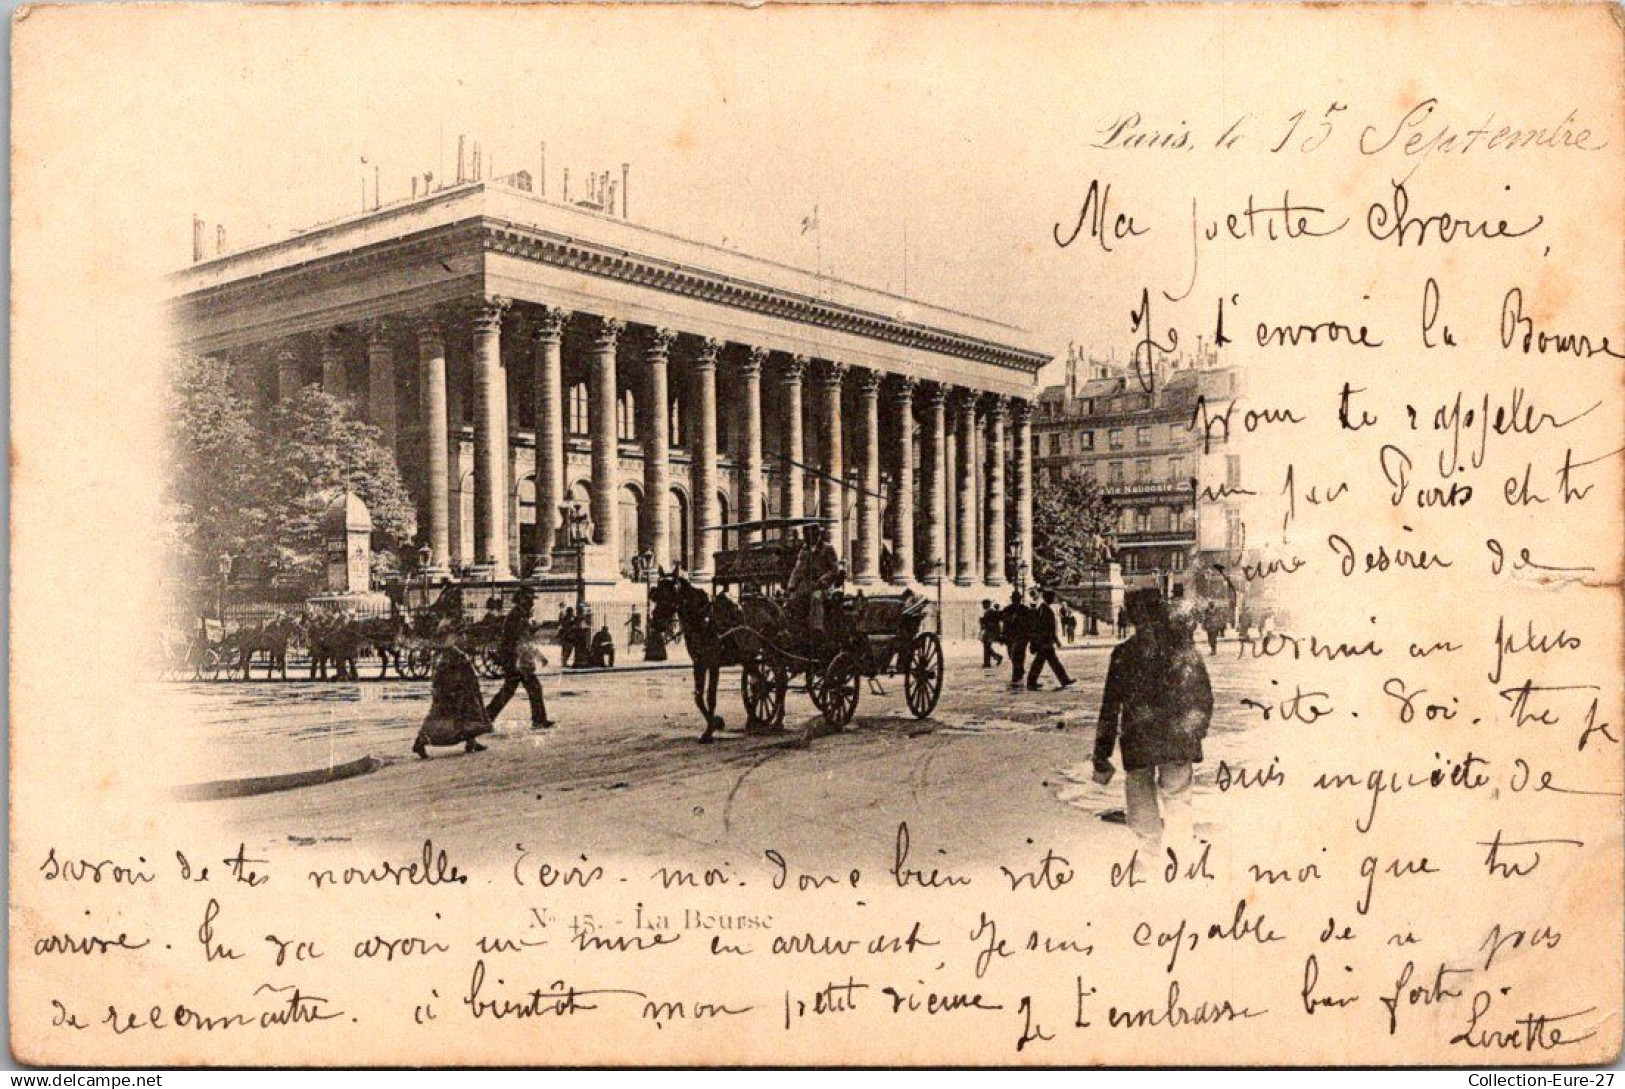 Paris, le 15 Septembre
Ma petite cherie,
Je t'envoie la Bourse
pour te rappeler
un peu Paris et te
faire desirer de
revenir au plus
vite. Je
suis inquiète, de
savoir de tes nouvelles. Ecris-moi donc bien vite et dit moi que tu
arrive. Tu va avoir un mine en arrivant, Je suis capable de n pas
No 45. - La Bourse
de reconnaître. à bientôt mon petit vieux je t'embrasse bien fort.
ie Nationale
Collection-Eure-27